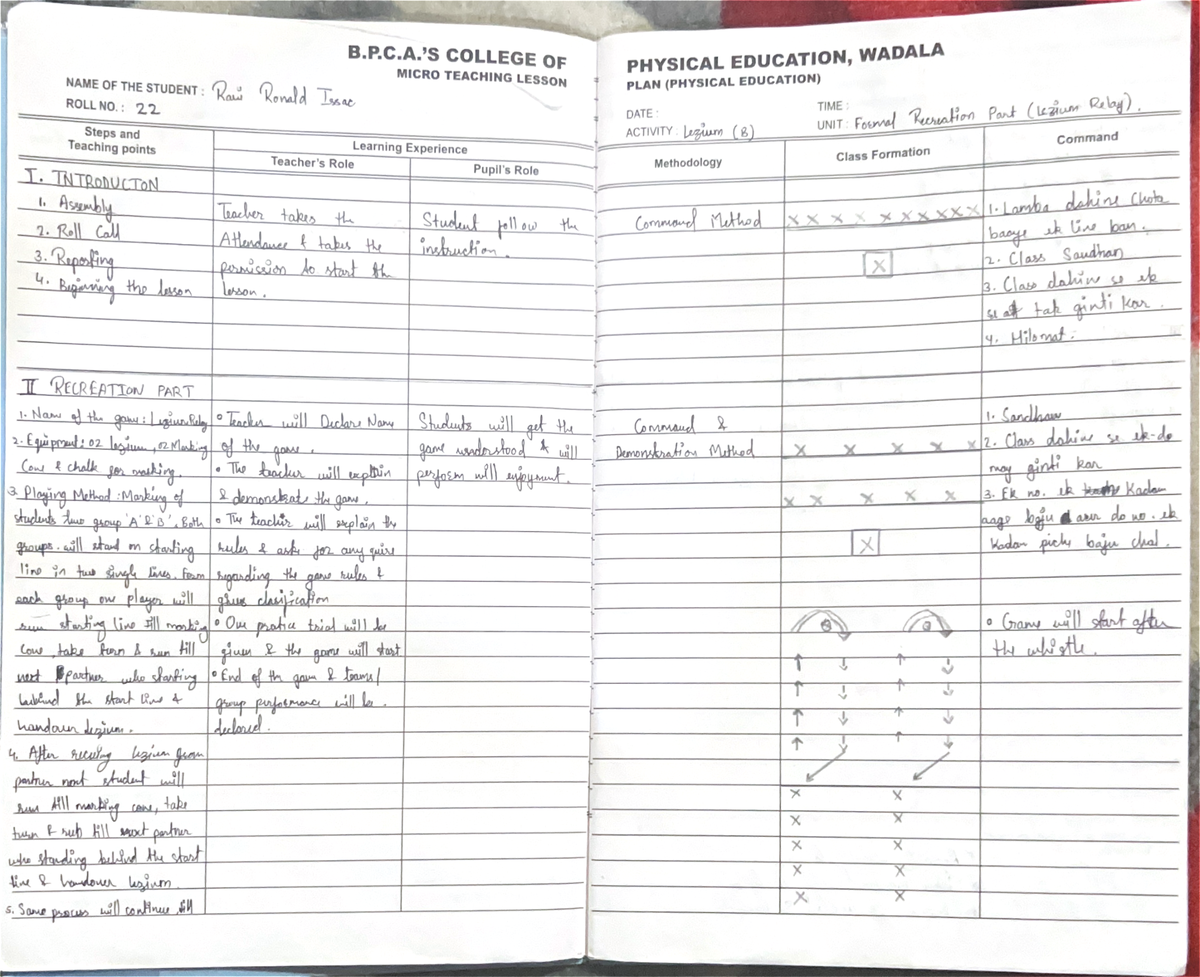 B.P.C.A.'S COLLEGE OF
MICRO TEACHING LESSON
NAME OF THE STUDENT : Ravi Ronald Issac
ROLL NO. : 22
Steps and
Teaching points
Learning Experience
Teacher's Role
Pupil's Role
I. INTRODUCTON
1. Assembly
2. Roll Call
3. Reporting
4. Beginning the lesson
Teacher takes the
Attendance & takes the
permission to start the
lesson.
Student follow the
instruction.
II RECREATION PART
1. Name of the game : Lezium Relay
2. Equipment : 02 lezium, 02 Marking
Cone & chalk for marking.
3. Playing Method : Marking of
students two group 'A' & 'B'. Both
groups will stand on starting
line in two singh lines. From
each group one player will
run starting line till marking
cone, take turn & run till
next partner who starting
behind the start line &
handover lezium.
4. After receving lezium from
partner next student will
run till marking cone, take
turn & rub till next partner
who standing behind the start
line & handover lezium.
5. Same process will continue till
• Teacher will Declare Name
of the game.
• The teacher will explain
& demonstrate the game.
• The teacher will explain the
rules & asks for any
regarding the game rules &
gives clasification
• One pratice trial will be
given & the game will start
• End of the game & teams/
group performance will be
declared.
Students will get the
game understood & will
perform will enjoyment.
PHYSICAL EDUCATION, WADALA
PLAN (PHYSICAL EDUCATION)
DATE :
TIME :
ACTIVITY : Lezium (B)
UNIT : Formal Recreation Part (Lezium Relay).
Methodology
Class Formation
Command
Command Method
x x x x x x x x x x x
x
1. Lamba dahine Chota
baaye ek line ban.
2. Class Saudhan
3. Class dahine se ek
se tak ginti kar.
4. Hilomat.
Command &
Demonstration Method
x x x x x
x x x x x
x
1. Sandhaw
2. Class dahine se ek-do
may ginti kar
3. Ek no. ek Kadam
aage baju aur do no. ek
Kadam piche baju chal.
• Game will start after
the whistle.
x x
x x
x x
x x
x x